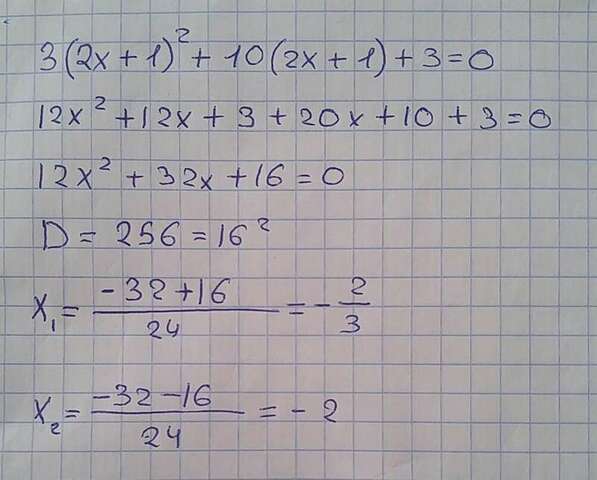 3(2x+1)²+10(2x+1)+3=0
12x²+12x+3+20x+10+3=0
12x²+32x+16=0
D=256=16²
x₁=(-32+16)/24=-2/3
x₂=(-32-16)/24=-2